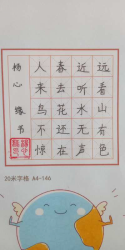 远看山有色
近听水无声
春去花还在
人来鸟不惊
杨心缘书
20米字格 A4-146